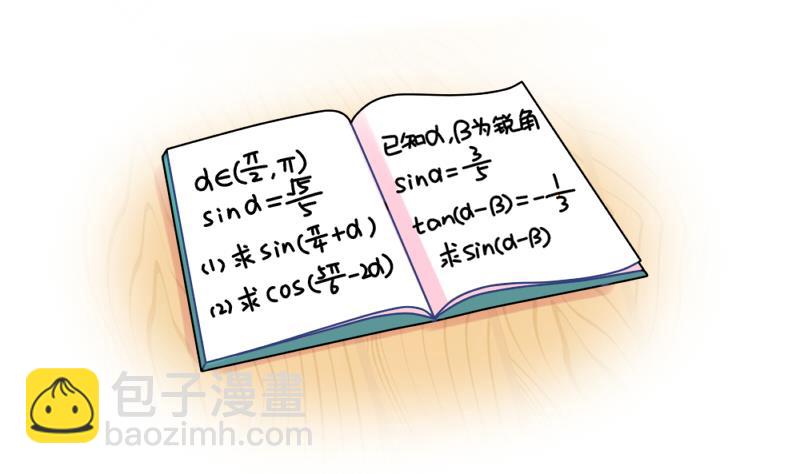 α∈(π/2,π)
sinα=√5/5
(1) 求sin(π/4+α)
(2) 求cos(5π/6-2α)
已知α,β为锐角
sinα=3/5
tan(α-β)=-1/3
求sin(α-β)
包子漫畫
baozimh.com